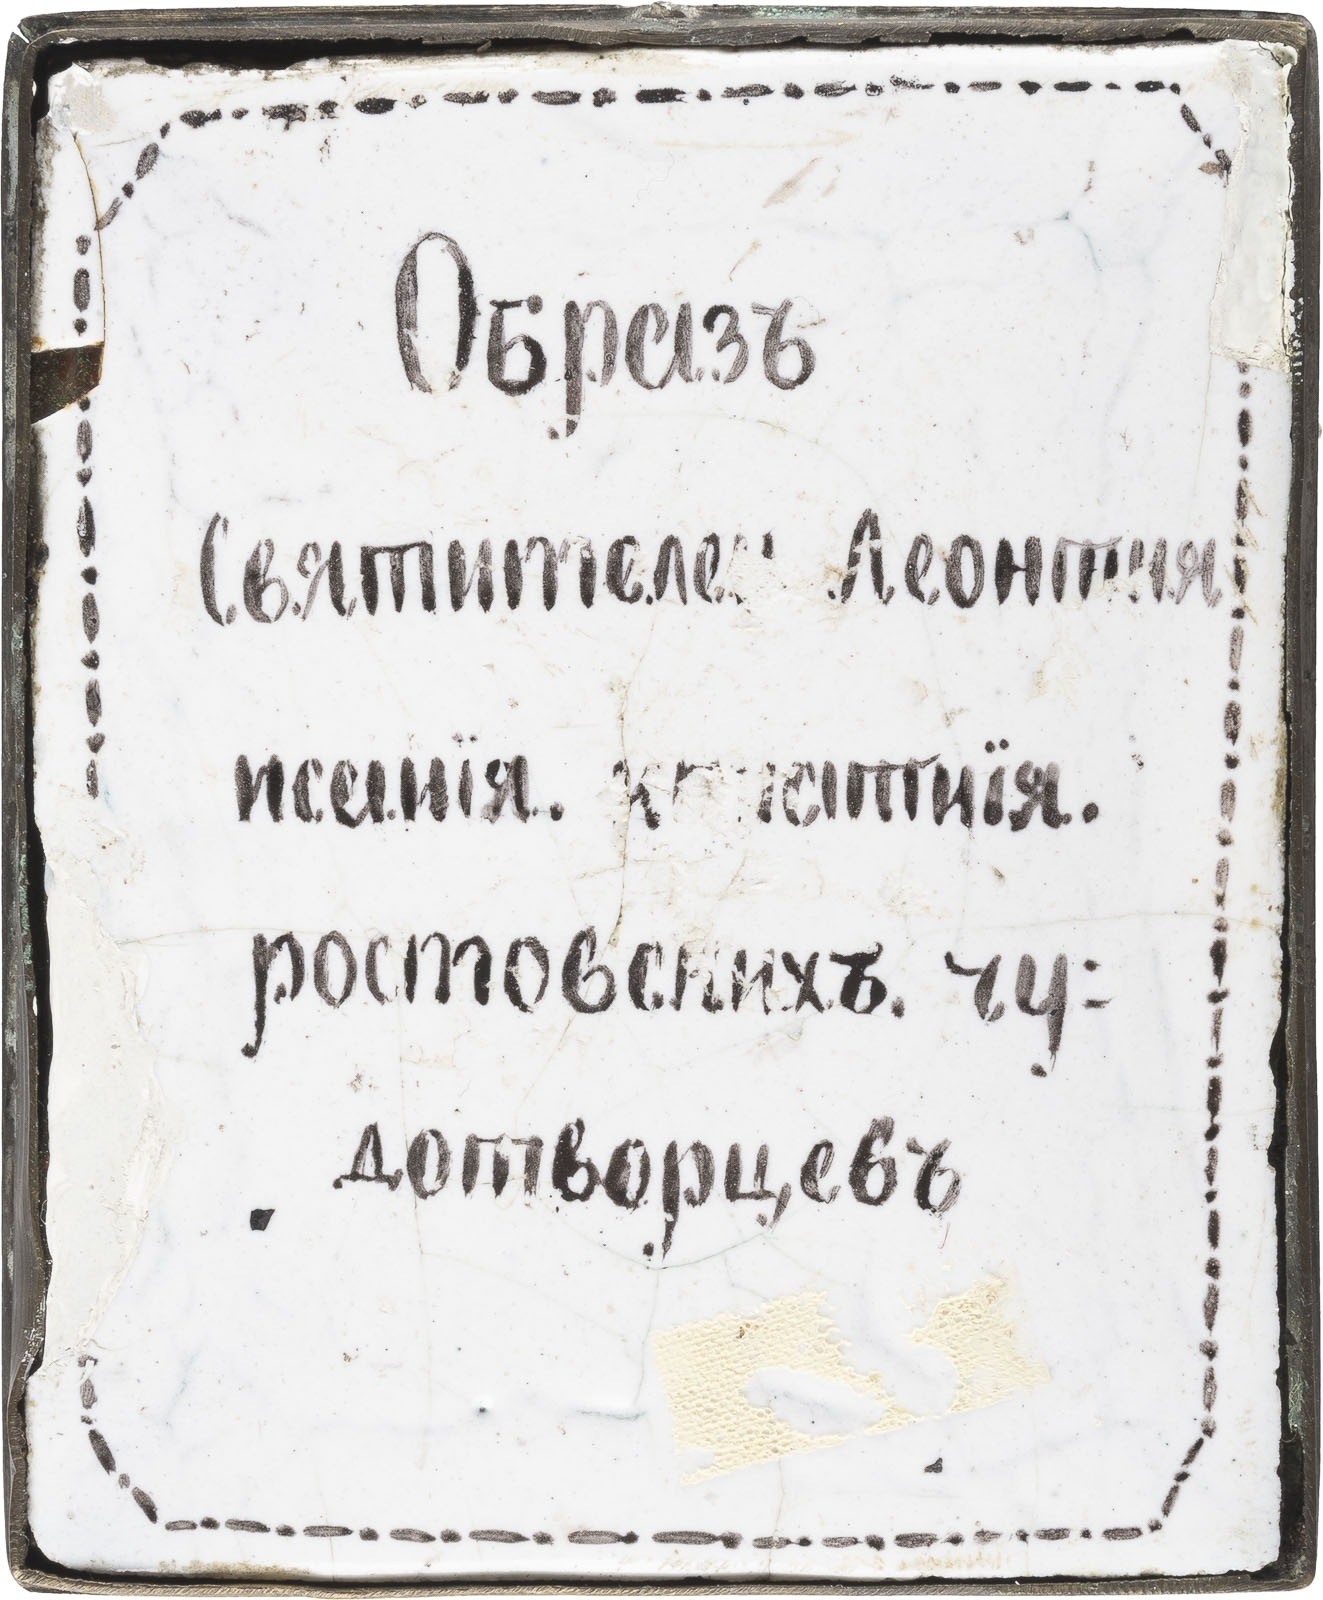 Образъ
Святителеи Леонтия
исаиїя.
ростовскихъ. чу=
дотворцевъ